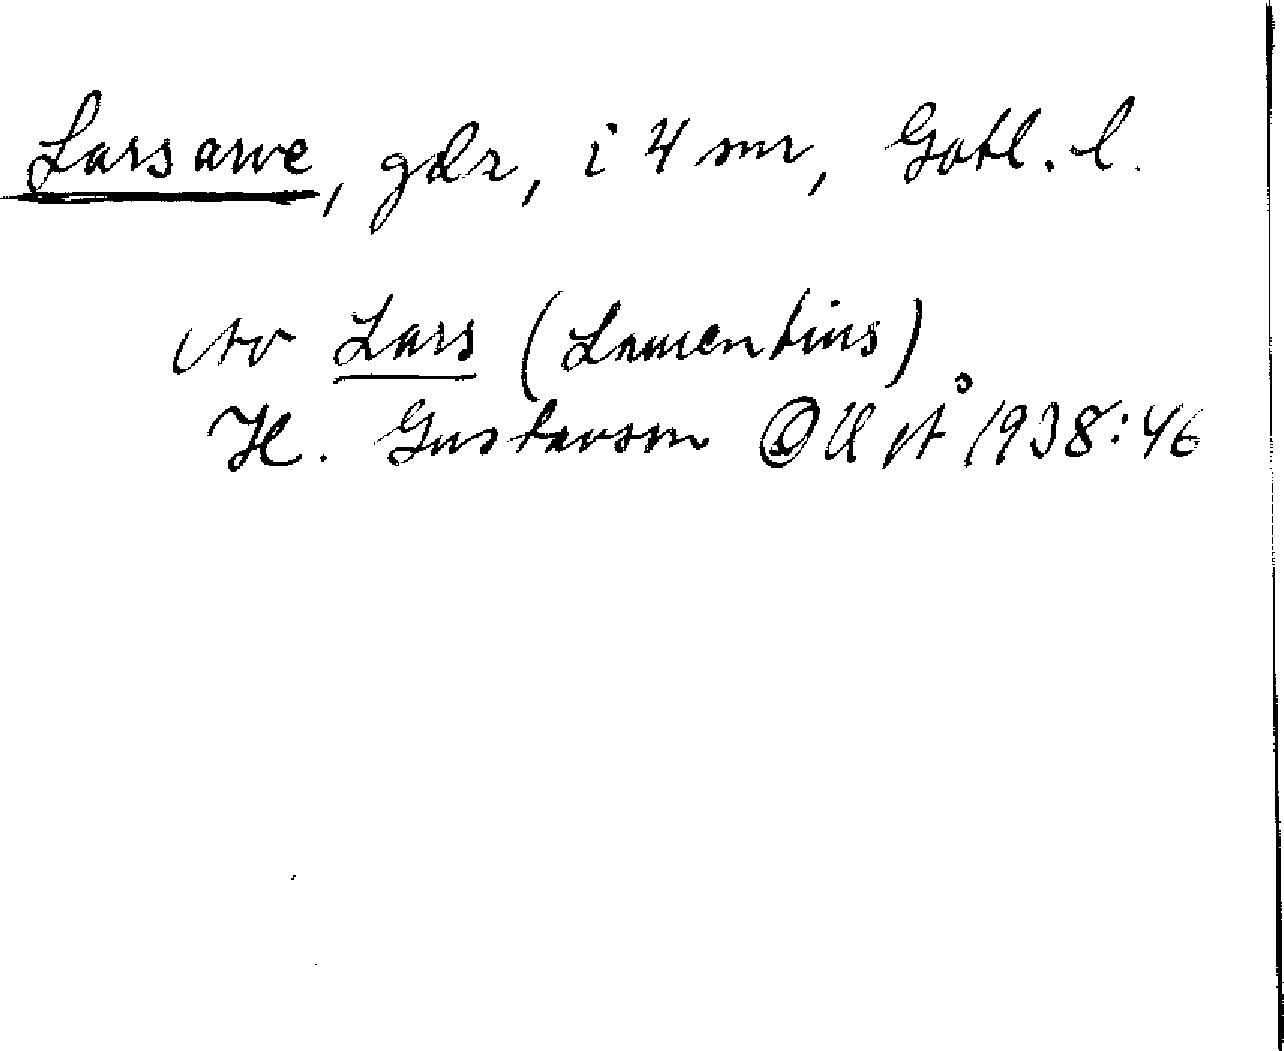 Larsarve, gdr, i 4 snr, Gotl. l.
av Lars (Laurentius)
H. Gustavson 1938:46